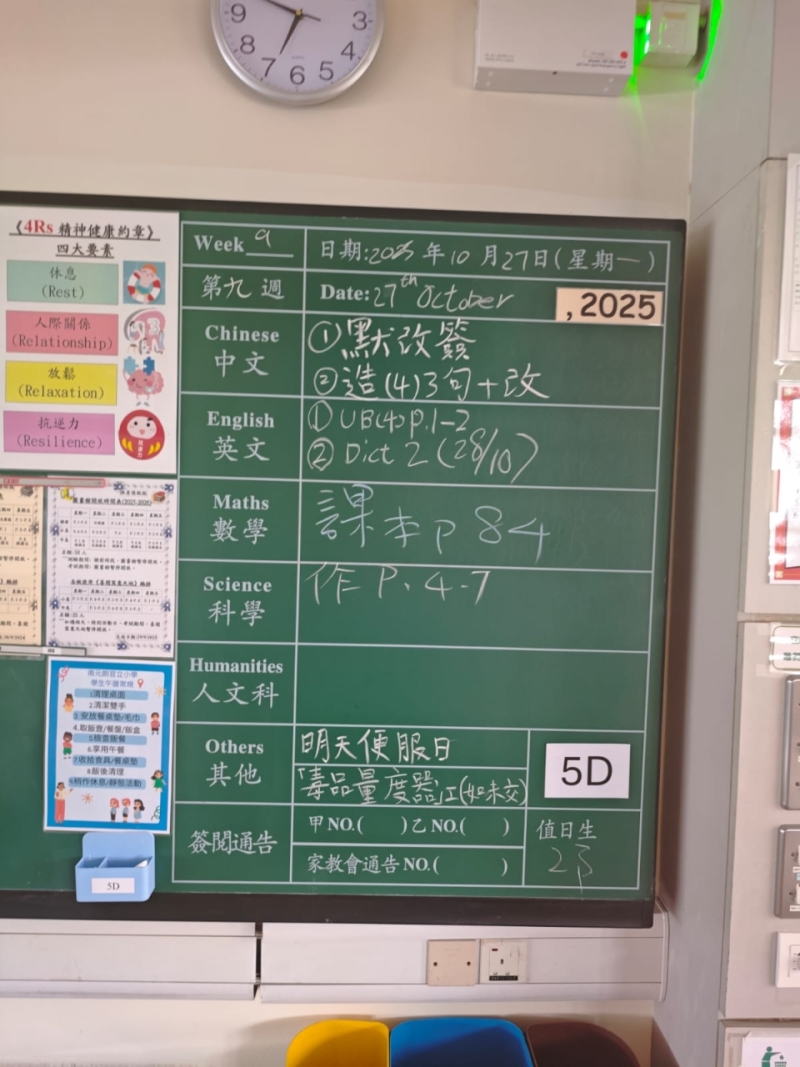 9
3
8
4
7
6
5
《4Rs 精神健康約章》
四大要素
休息
(Rest)
人際關係
(Relationship)
放鬆
(Relaxation)
抗逆力
(Resilience)
Week 9
日期:2025年10月27日(星期一)
第九週
Date: 27th October
, 2025
Chinese
中文
①默改簽
②造(4)3句+改
English
英文
① UB(4)P.1-2
② Dict 2 (28/10)
Maths
數學
課本P 84
Science
科學
作 P. 4-7
Humanities
人文科
Others
其他
明天便服日
「毒品量度器」工(如未交)
5D
簽閱通告
甲NO.( )乙NO.( )
家教會通告NO.( )
值日生
學生午膳常規
1.清理桌面
2.清潔雙手
3.安放餐桌墊/毛巾
4.取飯壺/餐盤/飯盒
6.享用午餐
7.收拾食具/餐桌墊
8.飯後清理
9.稍作休息/靜態活動
5D